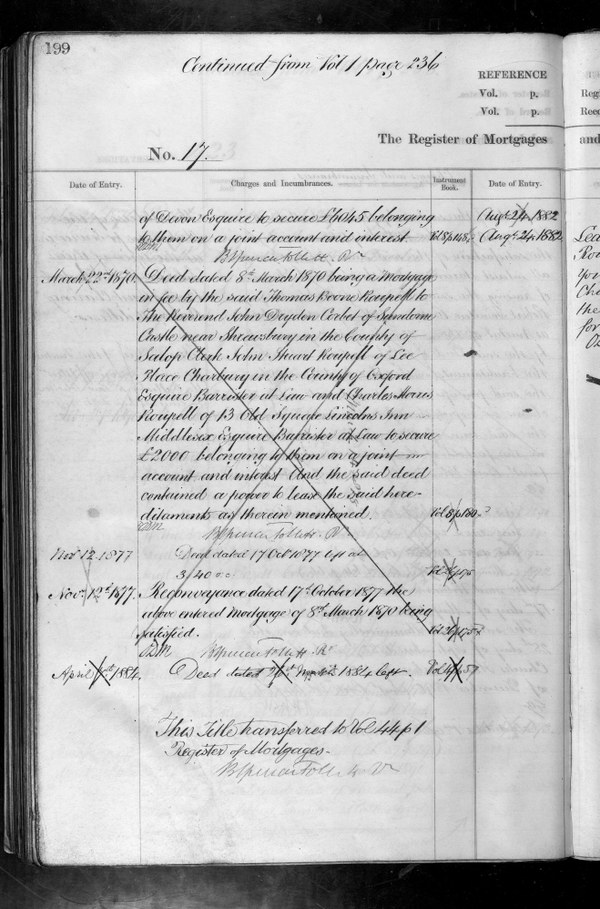 199
Continued from Vol 1 page 236
REFERENCE
Vol. p.
Vol. p.
The Register of Mortgages
No. 17.
Date of Entry.
Charges and Incumbrances.
Instrument Book.
Date of Entry.
of Devon Esquire to secure £6045 belonging
Augt 24. 1882
to them on a joint account and interest.
Vol 8 p 148
Augt 24. 1882
March 22nd 1870.
Deed dated 8th March 1870 being a Mortgage
in fee by the said Thomas Boone Roupell to
The Reverend John Dryden Corbet of Sundorne
Castle near Shrewsbury in the County of
Salop Clerk John Stuart Roupell of Lee
Place Charbury in the County of Oxford
Esquire Barrister at Law and Charles
Roupell of 13 Old Square Lincolns Inn
Middlesex Esquire Barrister at Law to secure
£2000 belonging to them on a joint
account and interest And the said deed
contained a power to lease the said here-
ditaments as therein mentioned.
Vol 8 p 150
Nov 12. 1877
Deed dated 17 Oct 1877 left at
3/40
Novr 12th 1877.
Reconveyance dated 17th October 1877 the
above entered Mortgage of 8th March 1870 being
satisfied.
April 1884.
Deed dated 1884 left.
This Title transferred to Vol 44 p 1
Register of Mortgages.
and